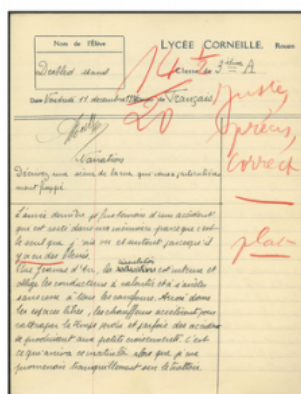 Nom de l'Élève
LYCÉE CORNEILLE. Rouen
14 1/2
20
Classe de 3ième A
Date Vendredi 11 décembre
Français
juste,
précis,
correct
Narration
Décrivez une scène de la rue qui vous a particulière
ment frappé.
plat
L'année dernière je fus témoin d'un accident
qui est resté dans ma mémoire parce que c'est
le seul que j'ai vu et surtout parce qu'il
y a eu des blessés.
Rue Jeanne d'Arc, la circulation est intense et
oblige les conducteurs à ralentir et à s'arrêter
sans cesse à tous les carrefours. Aussi dans
les espaces libres, les chauffeurs accélèrent pour
rattraper le temps perdu et parfois des accidents
se produisent aux petits croisements. C'est
ce qui arriva ce jour là alors que je me
promenais tranquillement sur le trottoir.